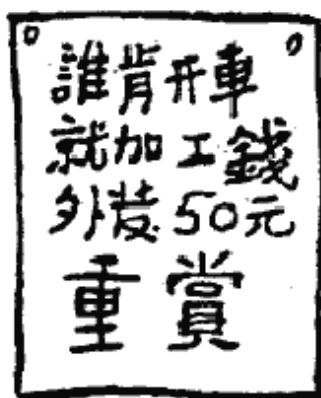 誰肯开車
就加工錢
外發50元
重賞